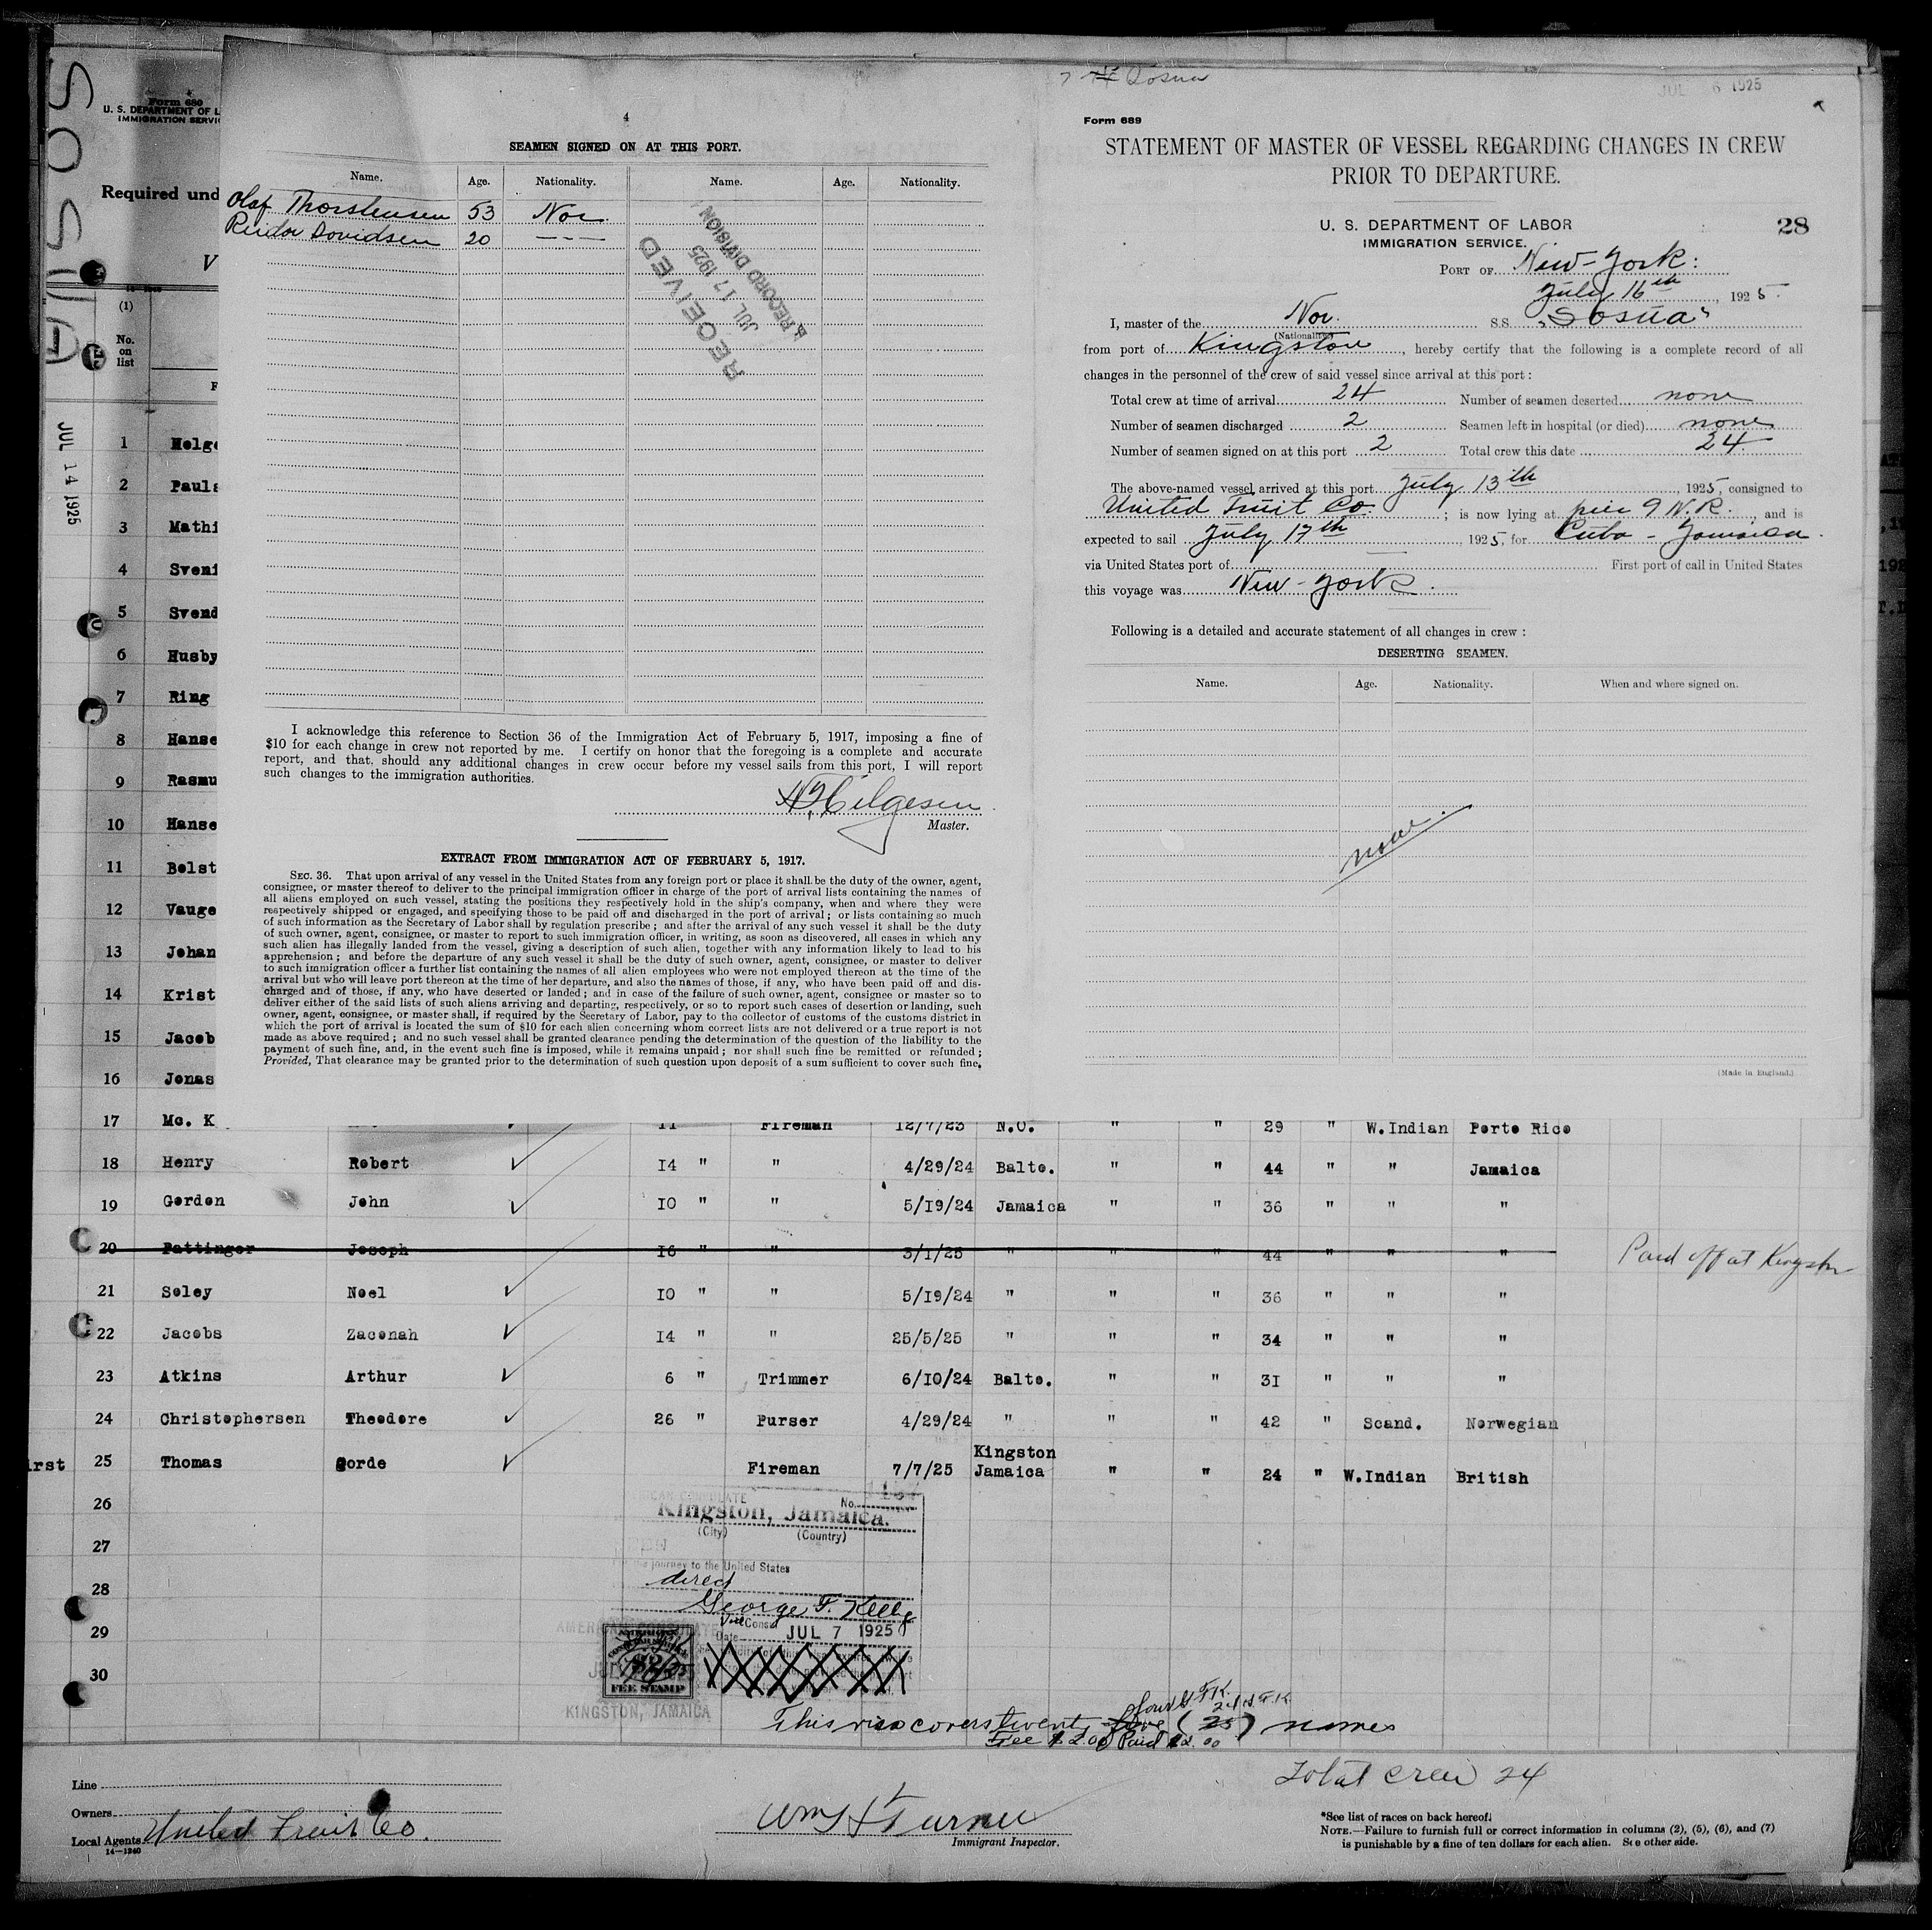 7 Sosua
JUL 6 1925
Form 689
STATEMENT OF MASTER OF VESSEL REGARDING CHANGES IN CREW
PRIOR TO DEPARTURE.
U. S. DEPARTMENT OF LABOR
28
IMMIGRATION SERVICE.
PORT OF New-York:
July 16th, 1925.
I, master of the Nor. S.S. "Sosua"
(Nationality)
from port of Kingston, hereby certify that the following is a complete record of all
changes in the personnel of the crew of said vessel since arrival at this port:
Total crew at time of arrival 24 Number of seamen deserted none
Number of seamen discharged 2 Seamen left in hospital (or died) none
Number of seamen signed on at this port 2 Total crew this date 24.
The above-named vessel arrived at this port July 13th, 1925, consigned to
United Fruit Co.; is now lying at pier 9 N.R., and is
expected to sail July 17th, 1925, for Cuba - Jamaica.
via United States port of First port of call in United States
this voyage was New-York.
Following is a detailed and accurate statement of all changes in crew:
DESERTING SEAMEN.
Name. Age. Nationality. When and where signed on.
none.
(Made in England.)
4
SEAMEN SIGNED ON AT THIS PORT.
Name. Age. Nationality. Name. Age. Nationality.
Olaf Thorstensen 53 Nor.
Reidar Davidsen 20 ---
RECEIVED
JUL 17 1925
RECORD DIVISION
I acknowledge this reference to Section 36 of the Immigration Act of February 5, 1917, imposing a fine of
$10 for each change in crew not reported by me. I certify on honor that the foregoing is a complete and accurate
report, and that, should any additional changes in crew occur before my vessel sails from this port, I will report
such changes to the immigration authorities.
Helgesen
Master.
EXTRACT FROM IMMIGRATION ACT OF FEBRUARY 5, 1917.
SEC. 36. That upon arrival of any vessel in the United States from any foreign port or place it shall be the duty of the owner, agent,
consignee, or master thereof to deliver to the principal immigration officer in charge of the port of arrival lists containing the names of
all aliens employed on such vessel, stating the positions they respectively hold in the ship's company, when and where they were
respectively shipped or engaged, and specifying those to be paid off and discharged in the port of arrival; or lists containing so much
of such information as the Secretary of Labor shall by regulation prescribe; and after the arrival of any such vessel it shall be the duty
of such owner, agent, consignee, or master to report to such immigration officer, in writing, as soon as discovered, all cases in which any
such alien has illegally landed from the vessel, giving a description of such alien, together with any information likely to lead to his
apprehension; and before the departure of any such vessel it shall be the duty of such owner, agent, consignee, or master to deliver
to such immigration officer a further list containing the names of all alien employees who were not employed thereon at the time of the
arrival but who will leave port thereon at the time of her departure, and also the names of those, if any, who have been paid off and dis-
charged and of those, if any, who have deserted or landed; and in case of the failure of such owner, agent, consignee or master so to
deliver either of the said lists of such aliens arriving and departing, respectively, or so to report such cases of desertion or landing, such
owner, agent, consignee, or master shall, if required by the Secretary of Labor, pay to the collector of customs of the customs district in
which the port of arrival is located the sum of $10 for each alien concerning whom correct lists are not delivered or a true report is not
made as above required; and no such vessel shall be granted clearance pending the determination of the question of the liability to the
payment of such fine, and, in the event such fine is imposed, while it remains unpaid; nor shall such fine be remitted or refunded;
Provided, That clearance may be granted prior to the determination of such question upon deposit of a sum sufficient to cover such fine.
SOSUA
JUL 14 1925
Form 680
U. S. DEPARTMENT OF L
IMMIGRATION SERVIC
Required und
V
(1)
No.
on
list
1 Helge
2 Pauls
3 Mathi
4 Sveni
5 Svend
6 Husby
7 Ring
8 Hanse
9 Rasmu
10 Hanse
11 Belst
12 Vauge
13 Johan
14 Krist
15 Jacob
16 Jonas
17 Mc. K 11 Fireman 12/7/23 N.O. " " 29 " W.Indian Porto Rico
18 Henry Robert 14 " " 4/29/24 Balto. " " 44 " " Jamaica
19 Gordon John 10 " " 5/19/24 Jamaica " " 36 " " "
20 Pattinger Joseph 16 " " 3/1/25 " " " 44 " " " Paid off at Kingston
21 Soley Noel 10 " " 5/19/24 " " " 36 " " "
22 Jacobs Zaconah 14 " " 25/5/25 " " " 34 " " "
23 Atkins Arthur 6 " Trimmer 6/10/24 Balto. " " 31 " " "
24 Christophersen Theodore 26 " Purser 4/29/24 " " " 42 " Scand. Norwegian
irst 25 Thomas Gorde Fireman 7/7/25 Kingston Jamaica " " 24 " W.Indian British
26
27
28
29
30
AMERICAN CONSULATE
No.
Kingston, Jamaica.
(City) (Country)
journey to the United States
direct
George F. Kelly
Vice Consul
Date JUL 7 1925
AMERICAN CONSULATE
FEE STAMP
KINGSTON, JAMAICA
four G.F.K. 24 G.F.K.
This visa covers twenty five (25) names
Fee $2.00 Paid $2.00
Total crew 24
Line
Owners
Local Agents United Fruit Co.
14—1240
Wm H Turner
Immigrant Inspector.
*See list of races on back hereof.
NOTE.—Failure to furnish full or correct information in columns (2), (5), (6), and (7)
is punishable by a fine of ten dollars for each alien. See other side.